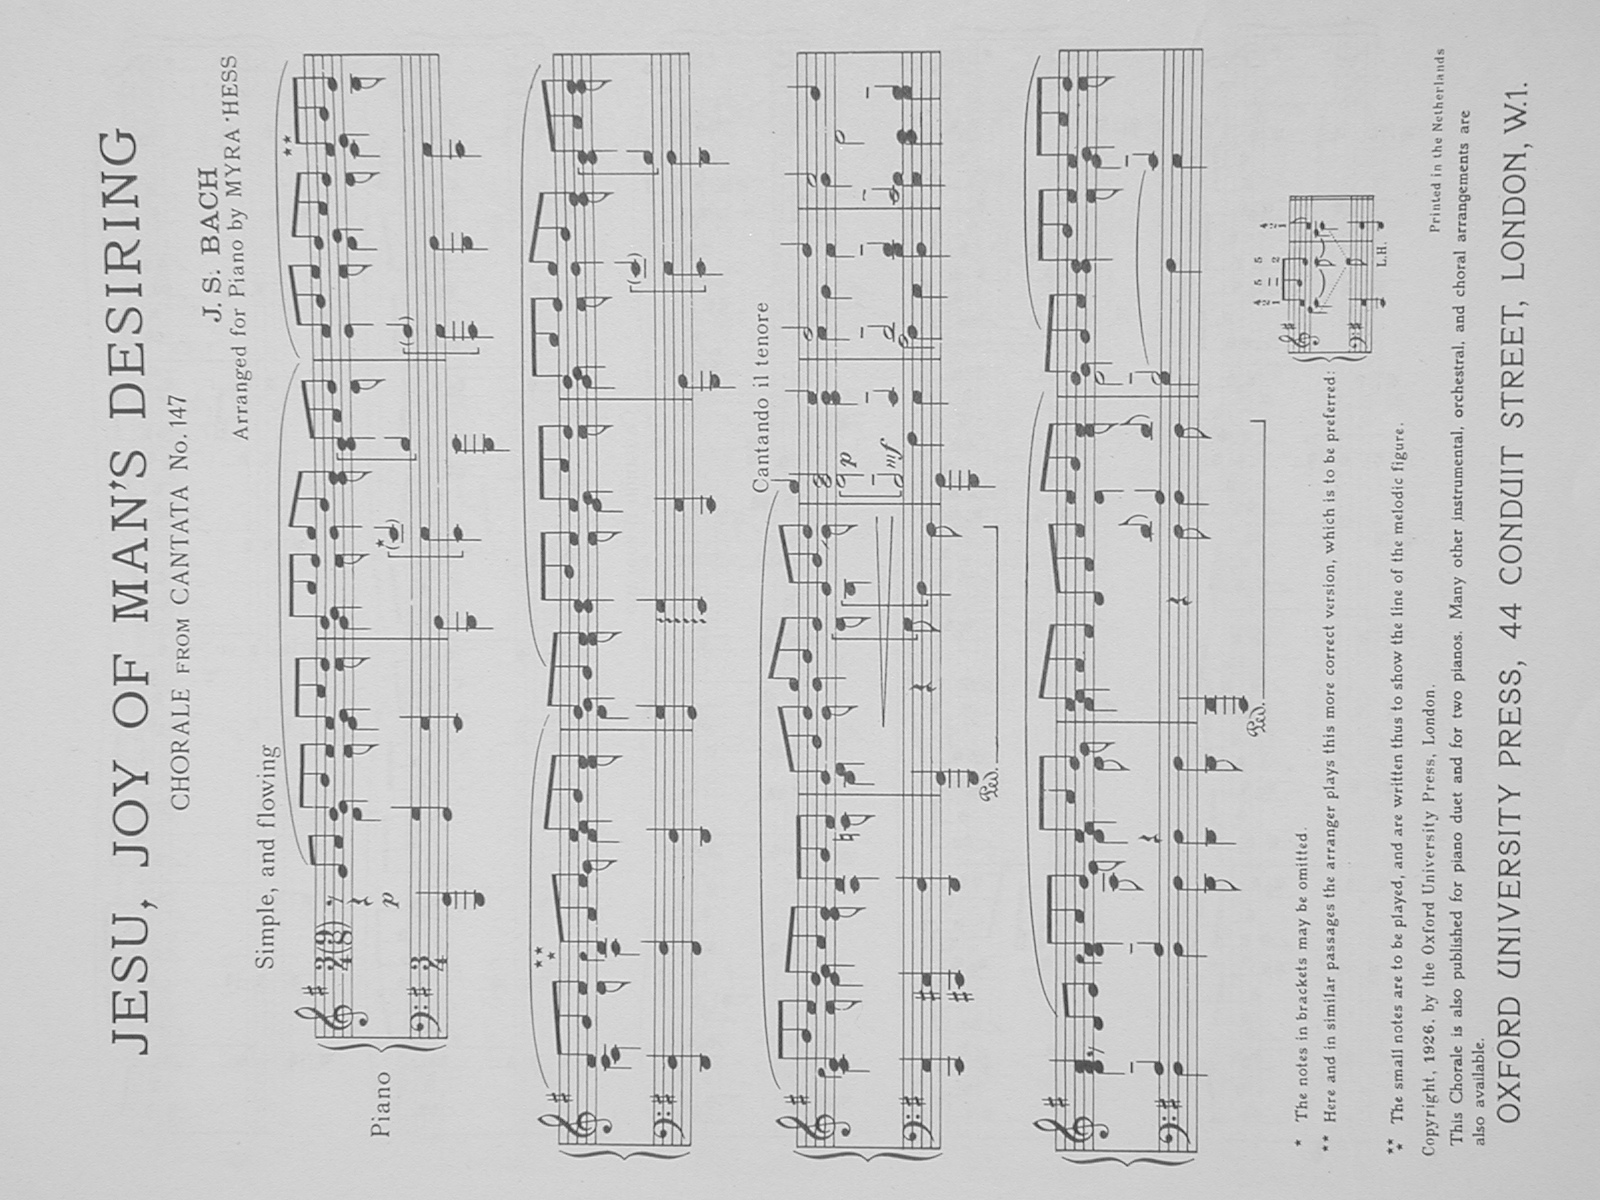 JESU, JOY OF MAN'S DESIRING
CHORALE FROM CANTATA No. 147
J. S. BACH
Arranged for Piano by MYRA HESS
Simple, and flowing
Piano
3/4 (9/8)
3/4
p
*
**
***
Cantando il tenore
p
mf
Ped.
Ped.
* The notes in brackets may be omitted.
** Here and in similar passages the arranger plays this more correct version, which is to be preferred:
4 2 1 5 1 5 2 4 2 1
L.H.
*** The small notes are to be played, and are written thus to show the line of the melodic figure.
Copyright, 1926. by the Oxford University Press, London.
Printed in the Netherlands
This Chorale is also published for piano duet and for two pianos. Many other instrumental, orchestral, and choral arrangements are
also available.
OXFORD UNIVERSITY PRESS, 44 CONDUIT STREET, LONDON, W.1.